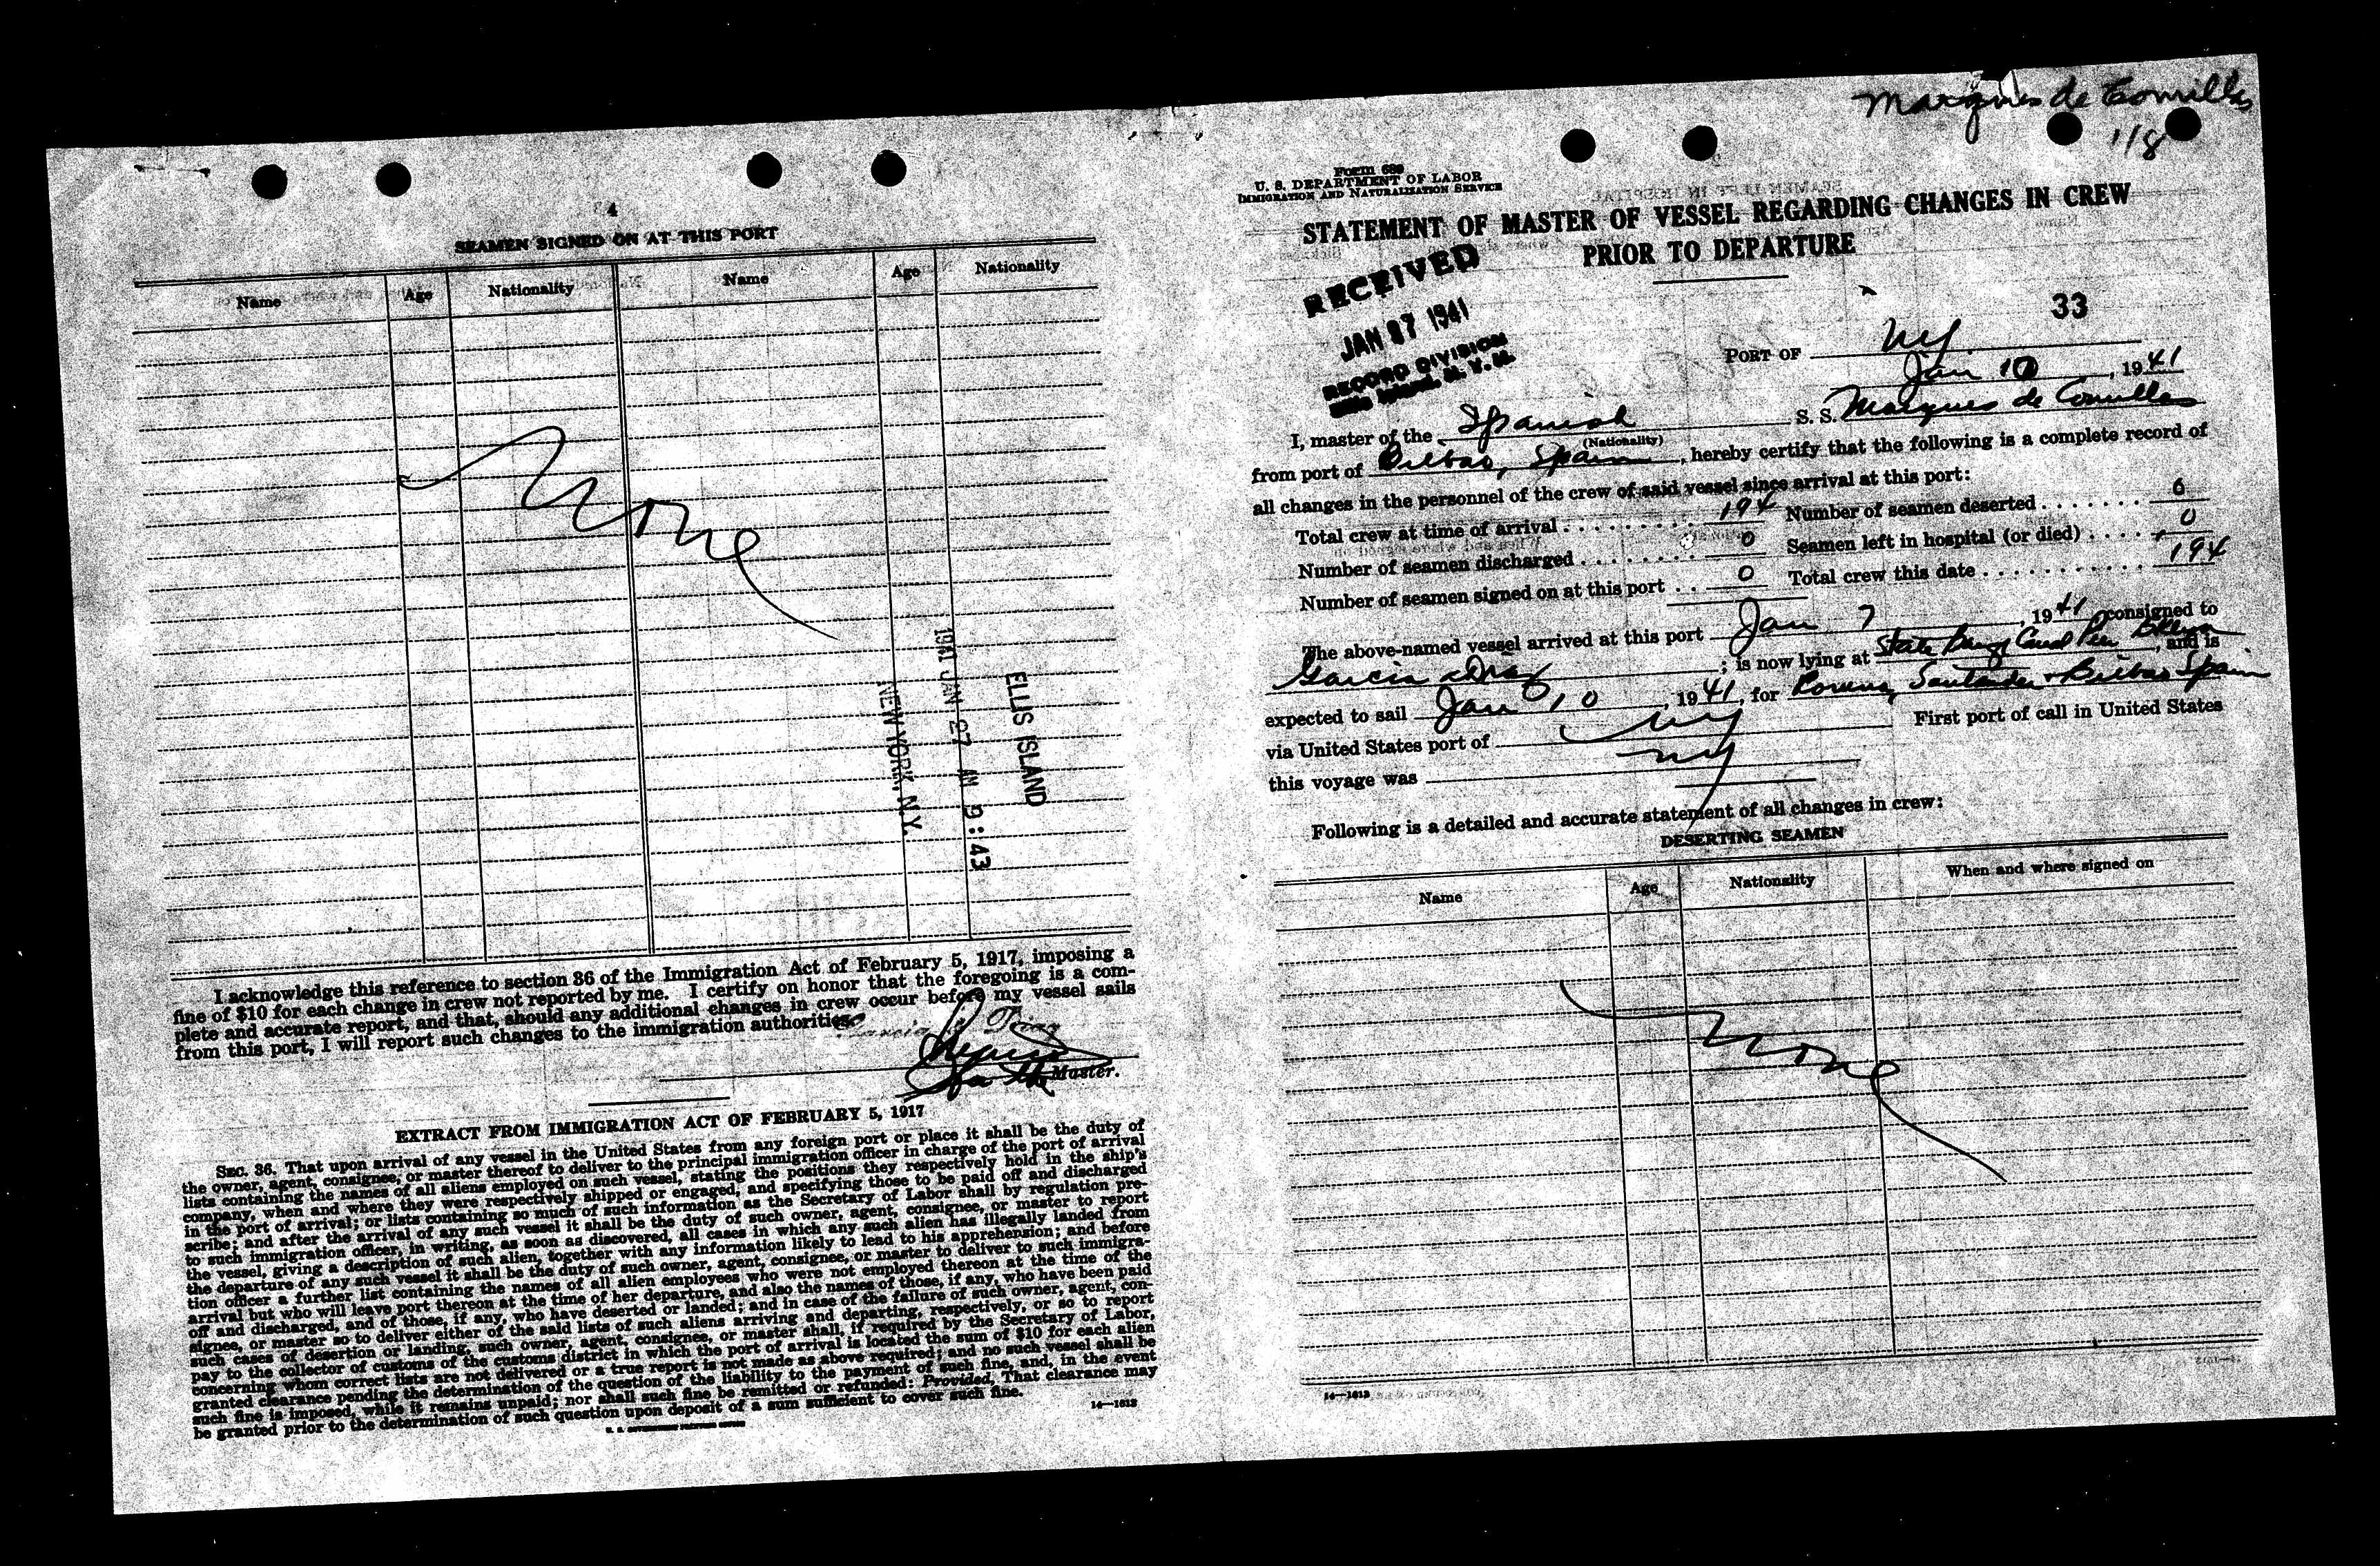 4
SEAMEN SIGNED ON AT THIS PORT
Name Age Nationality Name Age Nationality
None
ELLIS ISLAND
1941 JAN 27 AM 9:43
NEW YORK, N.Y.
I acknowledge this reference to section 36 of the Immigration Act of February 5, 1917, imposing a
fine of $10 for each change in crew not reported by me. I certify on honor that the foregoing is a com-
plete and accurate report, and that, should any additional changes in crew occur before my vessel sails
from this port, I will report such changes to the immigration authorities.
Garcia & Diaz
Master.
EXTRACT FROM IMMIGRATION ACT OF FEBRUARY 5, 1917
SEC. 36. That upon arrival of any vessel in the United States from any foreign port or place it shall be the duty of
the owner, agent, consignee, or master thereof to deliver to the principal immigration officer in charge of the port of arrival
lists containing the names of all aliens employed on such vessel, stating the positions they respectively hold in the ship's
company, when and where they were respectively shipped or engaged, and specifying those to be paid off and discharged
in the port of arrival; or lists containing so much of such information as the Secretary of Labor shall by regulation pre-
scribe; and after the arrival of any such vessel it shall be the duty of such owner, agent, consignee, or master to report
to such immigration officer, in writing, as soon as discovered, all cases in which any such alien has illegally landed from
the vessel, giving a description of such alien, together with any information likely to lead to his apprehension; and before
the departure of any such vessel it shall be the duty of such owner, agent, consignee, or master to deliver to such immigra-
tion officer a further list containing the names of all alien employees who were not employed thereon at the time of the
arrival but who will leave port thereon at the time of her departure, and also the names of those, if any, who have been paid
off and discharged, and of those, if any, who have deserted or landed; and in case of the failure of such owner, agent, con-
signee, or master so to deliver either of the said lists of such aliens arriving and departing, respectively, or so to report
such cases of desertion or landing, such owner, agent, consignee, or master shall, if required by the Secretary of Labor,
pay to the collector of customs of the customs district in which the port of arrival is located the sum of $10 for each alien
concerning whom correct lists are not delivered or a true report is not made as above required; and no such vessel shall be
granted clearance pending the determination of the question of the liability to the payment of such fine, and, in the event
such fine is imposed, while it remains unpaid; nor shall such fine be remitted or refunded: Provided, That clearance may
be granted prior to the determination of such question upon deposit of a sum sufficient to cover such fine.
14—1613
Marques de Comillas
1/8
Form 689
U. S. DEPARTMENT OF LABOR
IMMIGRATION AND NATURALIZATION SERVICE
STATEMENT OF MASTER OF VESSEL REGARDING CHANGES IN CREW
PRIOR TO DEPARTURE
RECEIVED
JAN 27 1941
RECORD DIVISION
Ellis Island, N. Y. H.
33
PORT OF NY
Jan 10, 1941
I, master of the Spanish S. S. Marques de Comillas
(Nationality)
from port of Bilbao, Spain, hereby certify that the following is a complete record of
all changes in the personnel of the crew of said vessel since arrival at this port:
Total crew at time of arrival 194 Number of seamen deserted 0
Number of seamen discharged 0 Seamen left in hospital (or died) 0
Number of seamen signed on at this port 0 Total crew this date 194
The above-named vessel arrived at this port Jan 7, 1941 consigned to
Garcia & Diaz; is now lying at State Barge Canal Pier Bklyn, and is
expected to sail Jan 10, 1941, for Coruna, Santander & Bilbao Spain
via United States port of NY First port of call in United States
this voyage was NY
Following is a detailed and accurate statement of all changes in crew:
DESERTING SEAMEN
Name Age Nationality When and where signed on
None
14—1613